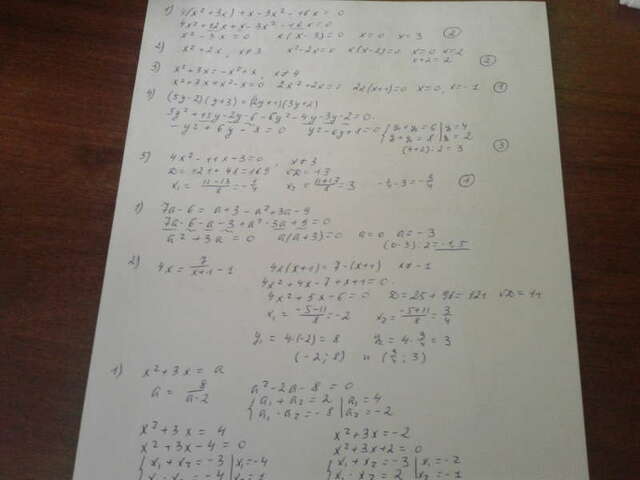 1) 4(x²+3x)+x-3x²-16x=0
4x²+12x+x-3x²-16x=0
x²-3x=0 x(x-3)=0 x=0 x=3 ②
2) x²+2x, x≠3 x²-2x=0 x(x-2)=0 x=0 x=2
x+2=2 ②
3) x²+3x=-x²+x, x≠4
x²+3x+x²-x=0 2x²+2x=0 2x(x+1)=0 x=0, x=-1 ①
4) (5y-2)(y+3)=(2y+1)(3y+2)
5y²+15y-2y-6-6y²-4y-3y-2=0
-y²+6y-8=0 y²-6y+8=0 { y+y=6 | y=4
y+y=8 | y=2
(4+2):2=3 ③
5) 4x²-11x-3=0, x≠3
D=121+48=169 √D=13
x₁=(11-13)/8=-1/4 x₂=(11+13)/8=3 -1/4·3=-3/4 ①
1) 7a-6=a+3-a²+3a-9
7a-6-a-3+a²-3a+9=0
a²+3a=0 a(a+3)=0 a=0 a=-3
(0-3):2=-1,5
2) 4x=7/(x+1)-1 4x(x+1)=7-(x+1) x≠-1
4x²+4x-7+x+1=0
4x²+5x-6=0 D=25+96=121 √D=11
x₁=(-5-11)/8=-2 x₂=(-5+11)/8=3/4
y₁=4·(-2)=8 y₂=4·3/4=3
(-2;8) и (3/4;3)
1) x²+3x=a
a=8/(a-2) a²-2a-8=0
{ a₁+a₂=2 | a₁=4
a₁·a₂=-8 | a₂=-2
x²+3x=4 x²+3x=-2
x²+3x-4=0 x²+3x+2=0
{ x₁+x₂=-3 | x₁=-4 { x₁+x₂=-3 | x₁=-2
x₁·x₂=-4 | x₂=1 x₁·x₂=2 | x₂=-1